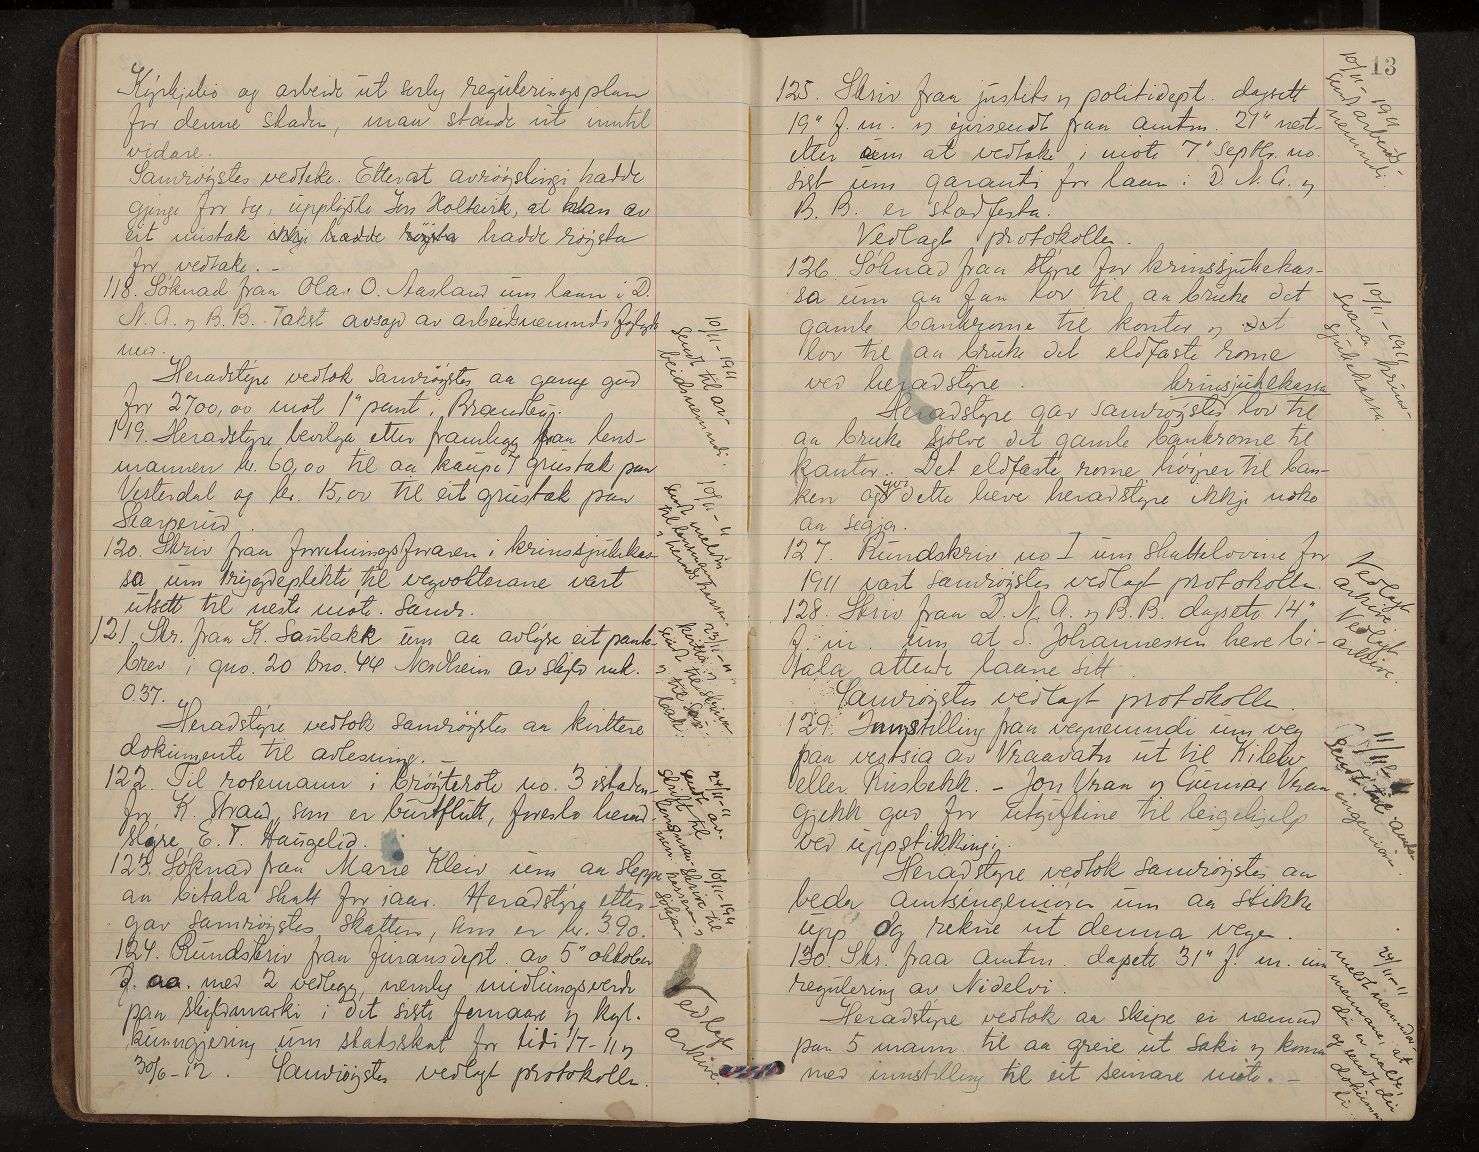 Kyrkjebø og arbeide ut serleg reguleringsplan
for denne skaden, maa stande ut inntil
vidare.
Samrøystes vedteke. Etterat avrøystingi hadde
gjenge for seg, upplyste Jon Holtvik, at han av
eit mistak hadde røysta
for vedtake. –
118. Søknad fraa Olav O. Aasland um laan i D.
N. A. og B. B. Takst avsagd av arbeidsnemndi fylgde
med.
Heradstyre vedtok samrøystes aa gange god
for 2700,00 mot 1ste pant i Brandliæ.
119. Heradstyre løyvga etter framlegg fraa lens-
mannen kr. 60,00 til aa kaupe grustak paa
Vesterdal og kr. 15,00 til eit grustak paa
Skarperud.
120. Skriv fraa forretningsføraren i krinssjukekas-
sa um trygdeplikti til vegvoktarane vart
utsett til neste møte. Samr.
121. Skr. fraa K. Saubakk um aa avløyse eit pante-
brev i gno. 20 bno. 44 Nordheim av skyld mk.
0.37.
Heradstyre vedtok samrøystes aa kvittere
dokumente til avlesning. –
122. Til rotemann i brøyterote no. 3 istaden-
for K. Straand, som er burtflutt, foreslo herad
styre E. T. Haugelid.
123. Søknad fraa Marie Kleiv um aa sleppe
aa bitala skatt for iaar. Heradstyre etter-
gav samrøystes skatten, som er kr. 3.90.
124. Rundskriv fraa finansdept. av 5te oktober
d. aa. med 2 vedlegg, nemleg midlungsverde
paa skyldmarki i det siste femaare og kgl.
kunngjering um statsskat for tidi 1/7-11 og
30/6-12. Samrøystes vedlagt protokollen.
10/11-1911
Sendt til ar-
beidsnemndi.
10/11-11
Sendt melding
til lensmannen
og heradskassa.
23/11-11
kvitta og
sendt til skriva
og til Sau-
bakk.
24/11-11 av-
skrift sendt til
lensmannen
10/11-1911
Skrive til
kasseraren og
søkjar.
Vedlagt
arkive.
13
125. Skriv fraa justits og politidept. dagsett
19de f. m. og gjensendt fraa amtm. 21de nest-
etter um at vedtake i møte 7de septbr. no
sist um garanti for laan i D. N. A. og
B. B. er stadfesta.
Vedlagt protokollen.
126. Søknad fraa styre for krinssjukekas-
sa um aa faa lov til aa bruke det
gamle bankrome til kontor og det
lov til aa bruke det eldfaste rome
ved heradstyre. krinsjukekassa
Heradstyre gav samrøystes lov til
aa bruke sjølve det gamle bankrome til
kontor. Det eldfaste rome høyrer til ban-
ken og yvi dette heve heradstyre ikkje noko
aa segja.
127. Rundskriv no I um skattelovine for
1911 vart samrøystes vedlagt protokollen.
128. Skriv fraa D. N. A. og B. B. dagsett 14de
f. m. um at S. Johannessen heve bi-
tala attende laane sitt
Samrøystes vedlagt protokollen.
129. Innstilling fraa vegnemndi um veg
paa vestsia av Vraavatn ut til Kilen
eller Risbekk. – Jon Vraa og Gunnar Vraa
gjekk god for utgiftine til leigehjelp
ved uppstikkingi.
Heradstyre vedtok samrøystes aa
beda amtsingeniøren um aa stikke
upp og rekne ut denna vegen.
130. Skr. fraa amtm. dagsett 31te f. m. um
regulering av Nidelvi.
Heradstyre vedtok aa skipe ei nemnd
paa 5 mann til aa greie ut saki og koma
med innstilling til eit seinare møte. –
10/11-1911
Sendt arbeids-
nemndi.
10/11-1911
Svara krins-
sjukekassa.
Vedlagt
arkive.
Vedlagt
arkive.
11/11
Sendt til amts-
ingeniøren.
24/11-11
meldt nemnd-
mennane, at
dei er valde,
og sendt dei
dokumen-
ti.